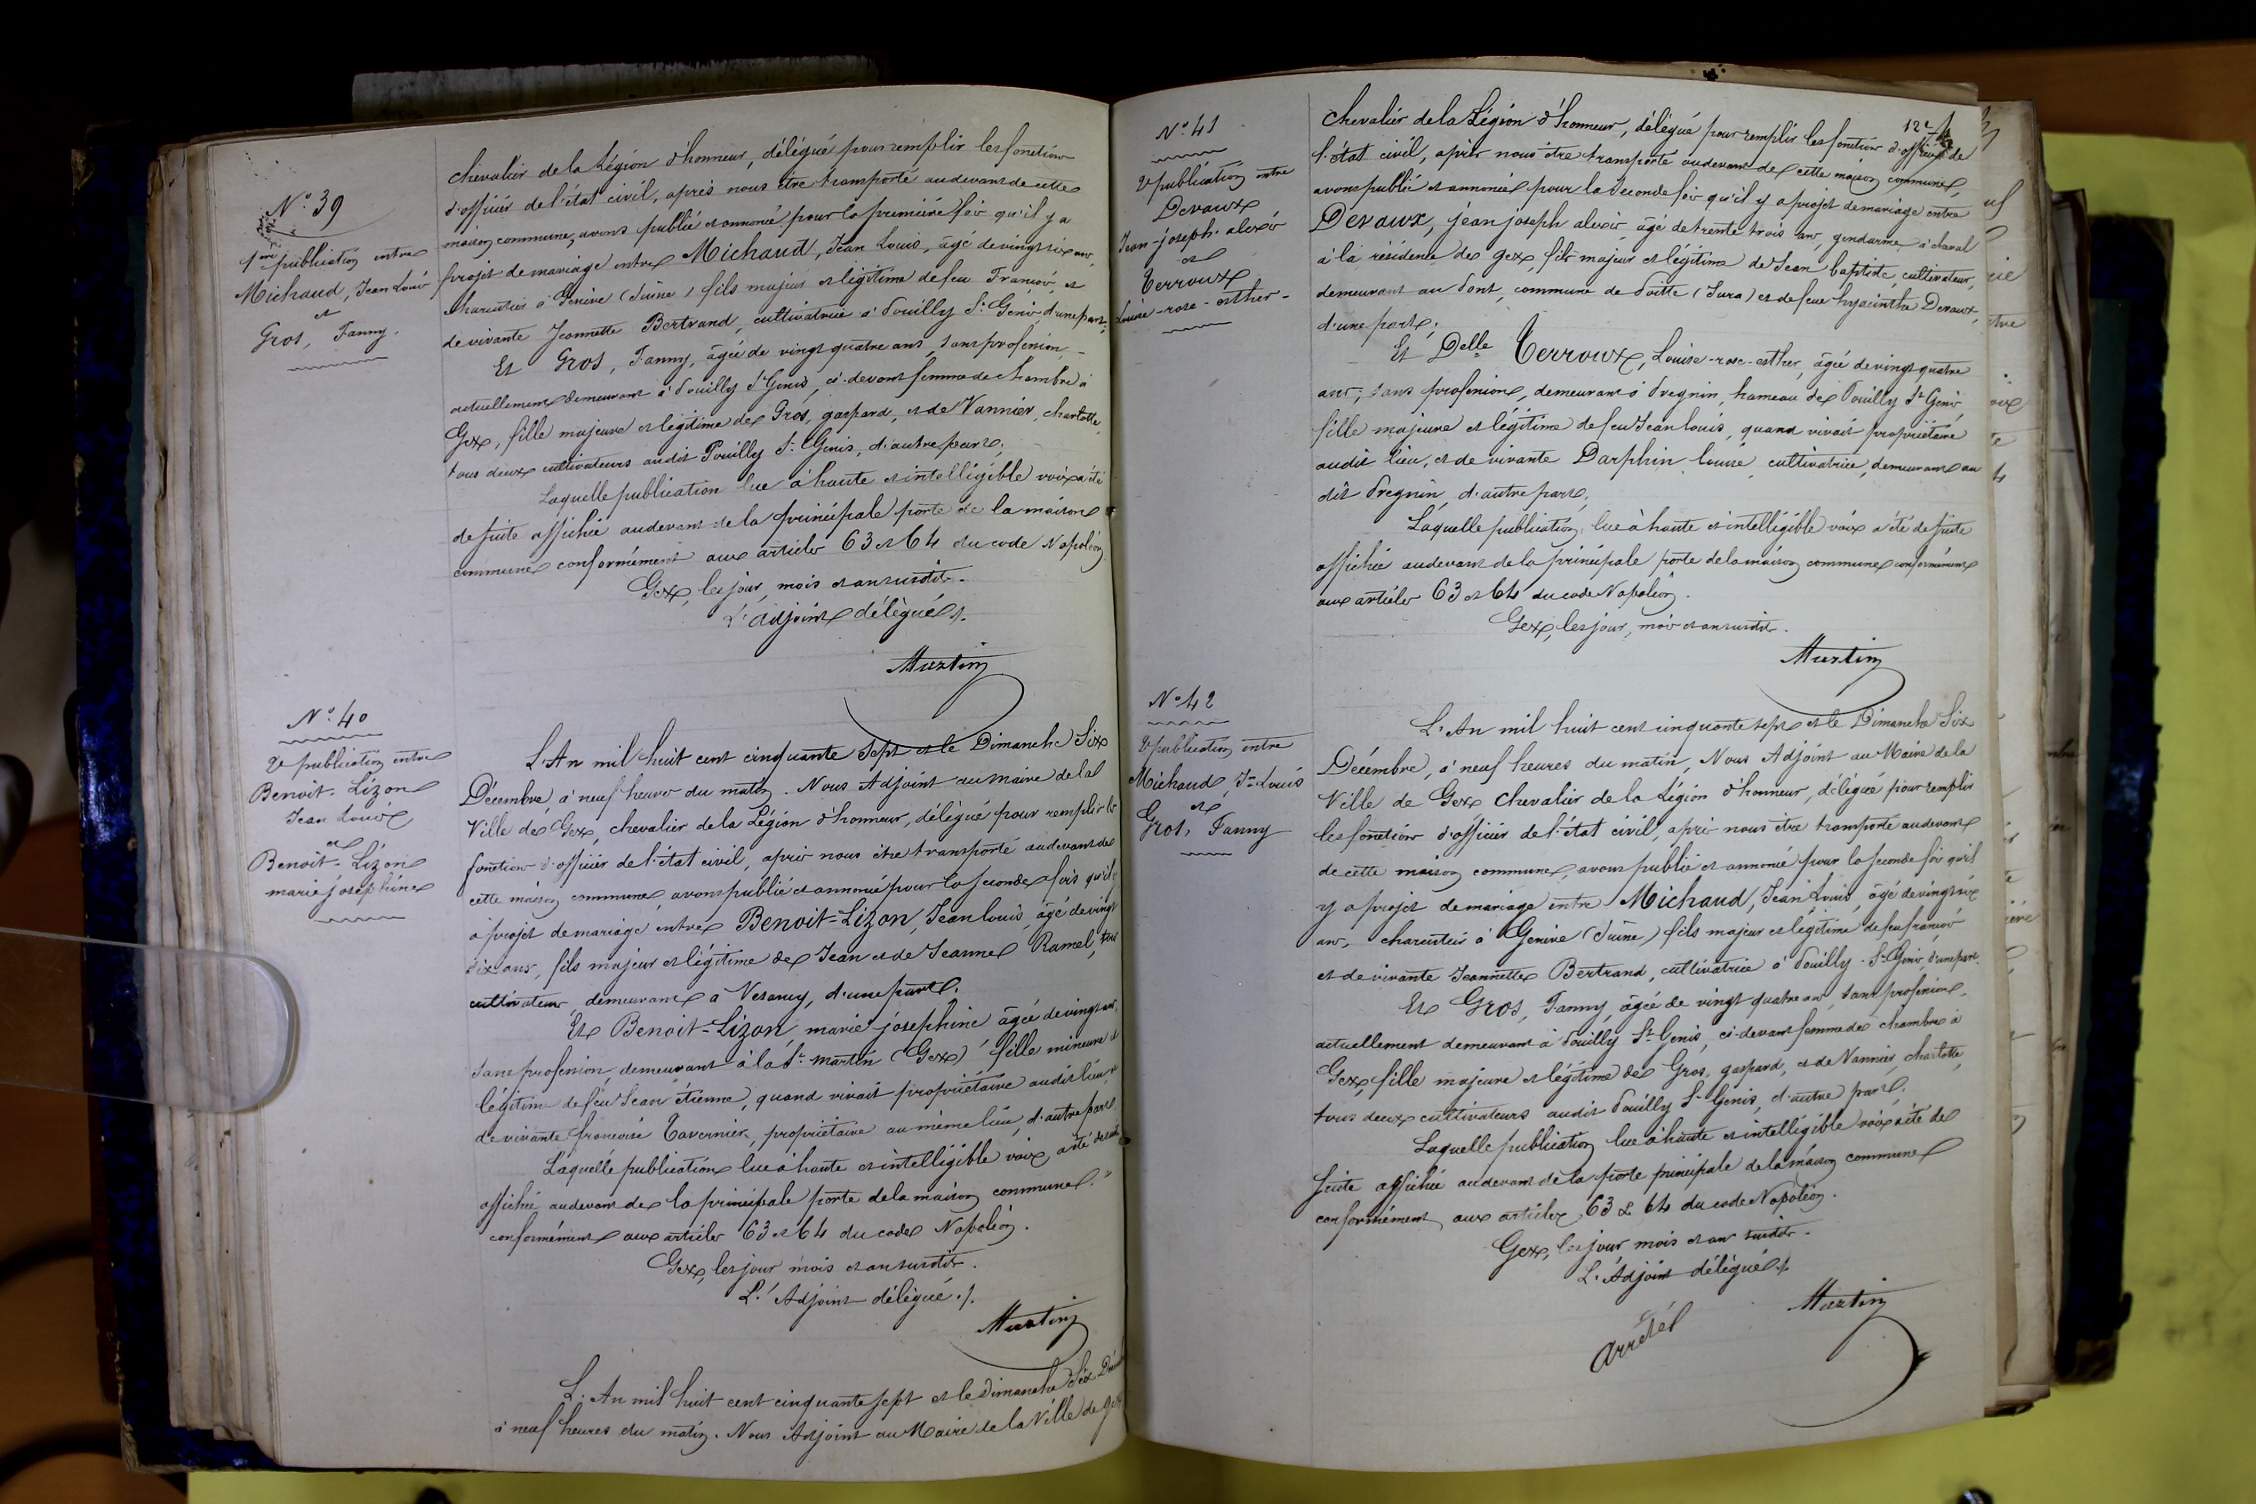 N.º 39
1ère publication entre
Michaud, Jean Louis
et
Gros, Fanny.
chevalier de la Légion d'honneur, délégué pour remplir les fonctions
d'officier de l'état civil, après nous être transporté au devant de cette
maison commune, avons publié et annoncé pour la première fois qu'il y a
projet de mariage entre Michaud, Jean Louis, âgé de vingt six ans,
charcutier à Genève (Suisse) fils majeur et légitime de feu François, et
de vivante Jeannette Bertrand, cultivatrice à Pouilly St Genis, d'une part,
Et Gros, Fanny, âgée de vingt quatre ans, sans profession,
actuellement demeurant à Pouilly St Genis, ci-devant femme de chambre à
Gex, fille majeure et légitime de Gros, gaspard, et de Vannier, charlotte,
tous deux cultivateurs audit Pouilly St Genis, d'autre part,
Laquelle publication lue à haute et intelligible voix a été
de suite affichée au devant de la principale porte de la maison
commune conformément aux articles 63 et 64 du code Napoléon
Gex, les jour, mois et an susdits.
L'adjoint délégué ./.
Martin
N.º 40
2e publication entre
Benoit-Lizon
Jean Louis
et
Benoit-Lizon
marie josephine
L'An mil huit cent cinquante sept et le Dimanche Six
Décembre, à neuf heures du matin. Nous Adjoint au maire de la
Ville de Gex, chevalier de la Légion d'honneur, délégué pour remplir les
fonctions d'officier de l'état civil, après nous être transporté au devant de
cette maison commune, avons publié et annoncé pour la seconde fois qu'il y
a projet de mariage entre Benoit-Lizon, Jean louis, âgé de vingt
six ans, fils majeur et légitime de Jean et de Jeanne Ramel, tous
cultivateurs, demeurant à Vesancy, d'une part.
Et Benoit-Lizon, marie josephine âgée de vingt ans,
sans profession, demeurant à la St martin (Gex) fille mineure et
légitime de feu Jean étienne, quand vivait propriétaire audit lieu, et
de vivante françoise Tavernier, propriétaire au même lieu, d'autre part
Laquelle publication lue à haute et intelligible voix a été de suite
affichée au devant de la principale porte de la maison commune
conformément aux articles 63 et 64 du code Napoléon.
Gex, les jour mois et an susdits.
L'Adjoint délégué ./.
Martin
L'An mil huit cent cinquante sept et le Dimanche Six Décembre
à neuf heures du matin. Nous Adjoint au Maire de la Ville de Gex
N.º 41
2e publication entre
Devaux
Jean-joseph-alexis
et
Terroux
Louise-rose-esther-
chevalier de la Légion d'honneur, délégué pour remplir les fonctions d'officier de
l'état civil, après nous être transporté au devant de cette maison commune,
avons publié et annoncé pour la seconde fois qu'il y a projet de mariage entre
Devaux, jean joseph alexis âgé de trente trois ans, gendarme à cheval
à la résidence de gex, fils majeur et légitime de Jean baptiste, cultivateur,
demeurant au Pont, commune de (Jura) et de feue hyacinthe Devaux,
d'une part;
Et Delle Terroux, Louise-rose-esther, âgée de vingt quatre
ans, sans profession, demeurant à Pregnin, hameau de Pouilly St Genis
fille majeure et légitime de feu Jean louis, quand vivait propriétaire
audit lieu, et de vivante Darphin louise, cultivatrice, demeurant au
dit Pregnin, d'autre part,
Laquelle publication, lue à haute et intelligible voix a été de suite
affichée au devant de la principale porte de la maison commune conformément
aux articles 63 et 64 du code Napoléon.
Gex, les jour, mois et an susdits.
Martin
N.º 42
2e publication entre
Michaud, Jn Louis
et
Gros, Fanny
L'An mil huit cent cinquante sept et le Dimanche Six
Décembre, à neuf heures du matin, Nous Adjoint au Maire de la
Ville de Gex chevalier de la Légion d'honneur, délégué pour remplir
les fonctions d'officier de l'état civil, après nous être transporté au devant
de cette maison commune, avons publié et annoncé pour la seconde fois qu'il
y a projet de mariage entre Michaud, Jean Louis, âgé de vingt six
ans, charcutier à Genève (Suisse) fils majeur et légitime de feu françois
et de vivante Jeannette Bertrand, cultivatrice à Pouilly-St Genis, d'une part.
Et Gros, Fanny, âgée de vingt quatre ans, sans profession,
actuellement demeurant à Pouilly St Genis, ci-devant femme de chambre à
Gex, fille majeure et légitime de Gros, gaspard, et de Vannier, charlotte,
tous deux cultivateurs audit Pouilly St Genis, d'autre part.
Laquelle publication lue à haute et intelligible voix a été de
suite affichée au devant de la porte principale de la maison commune
conformément aux articles 63 & 64 du code Napoléon.
Gex, les jour, mois et an susdits.
L'Adjoint délégué ./.
Martin
Arrêté